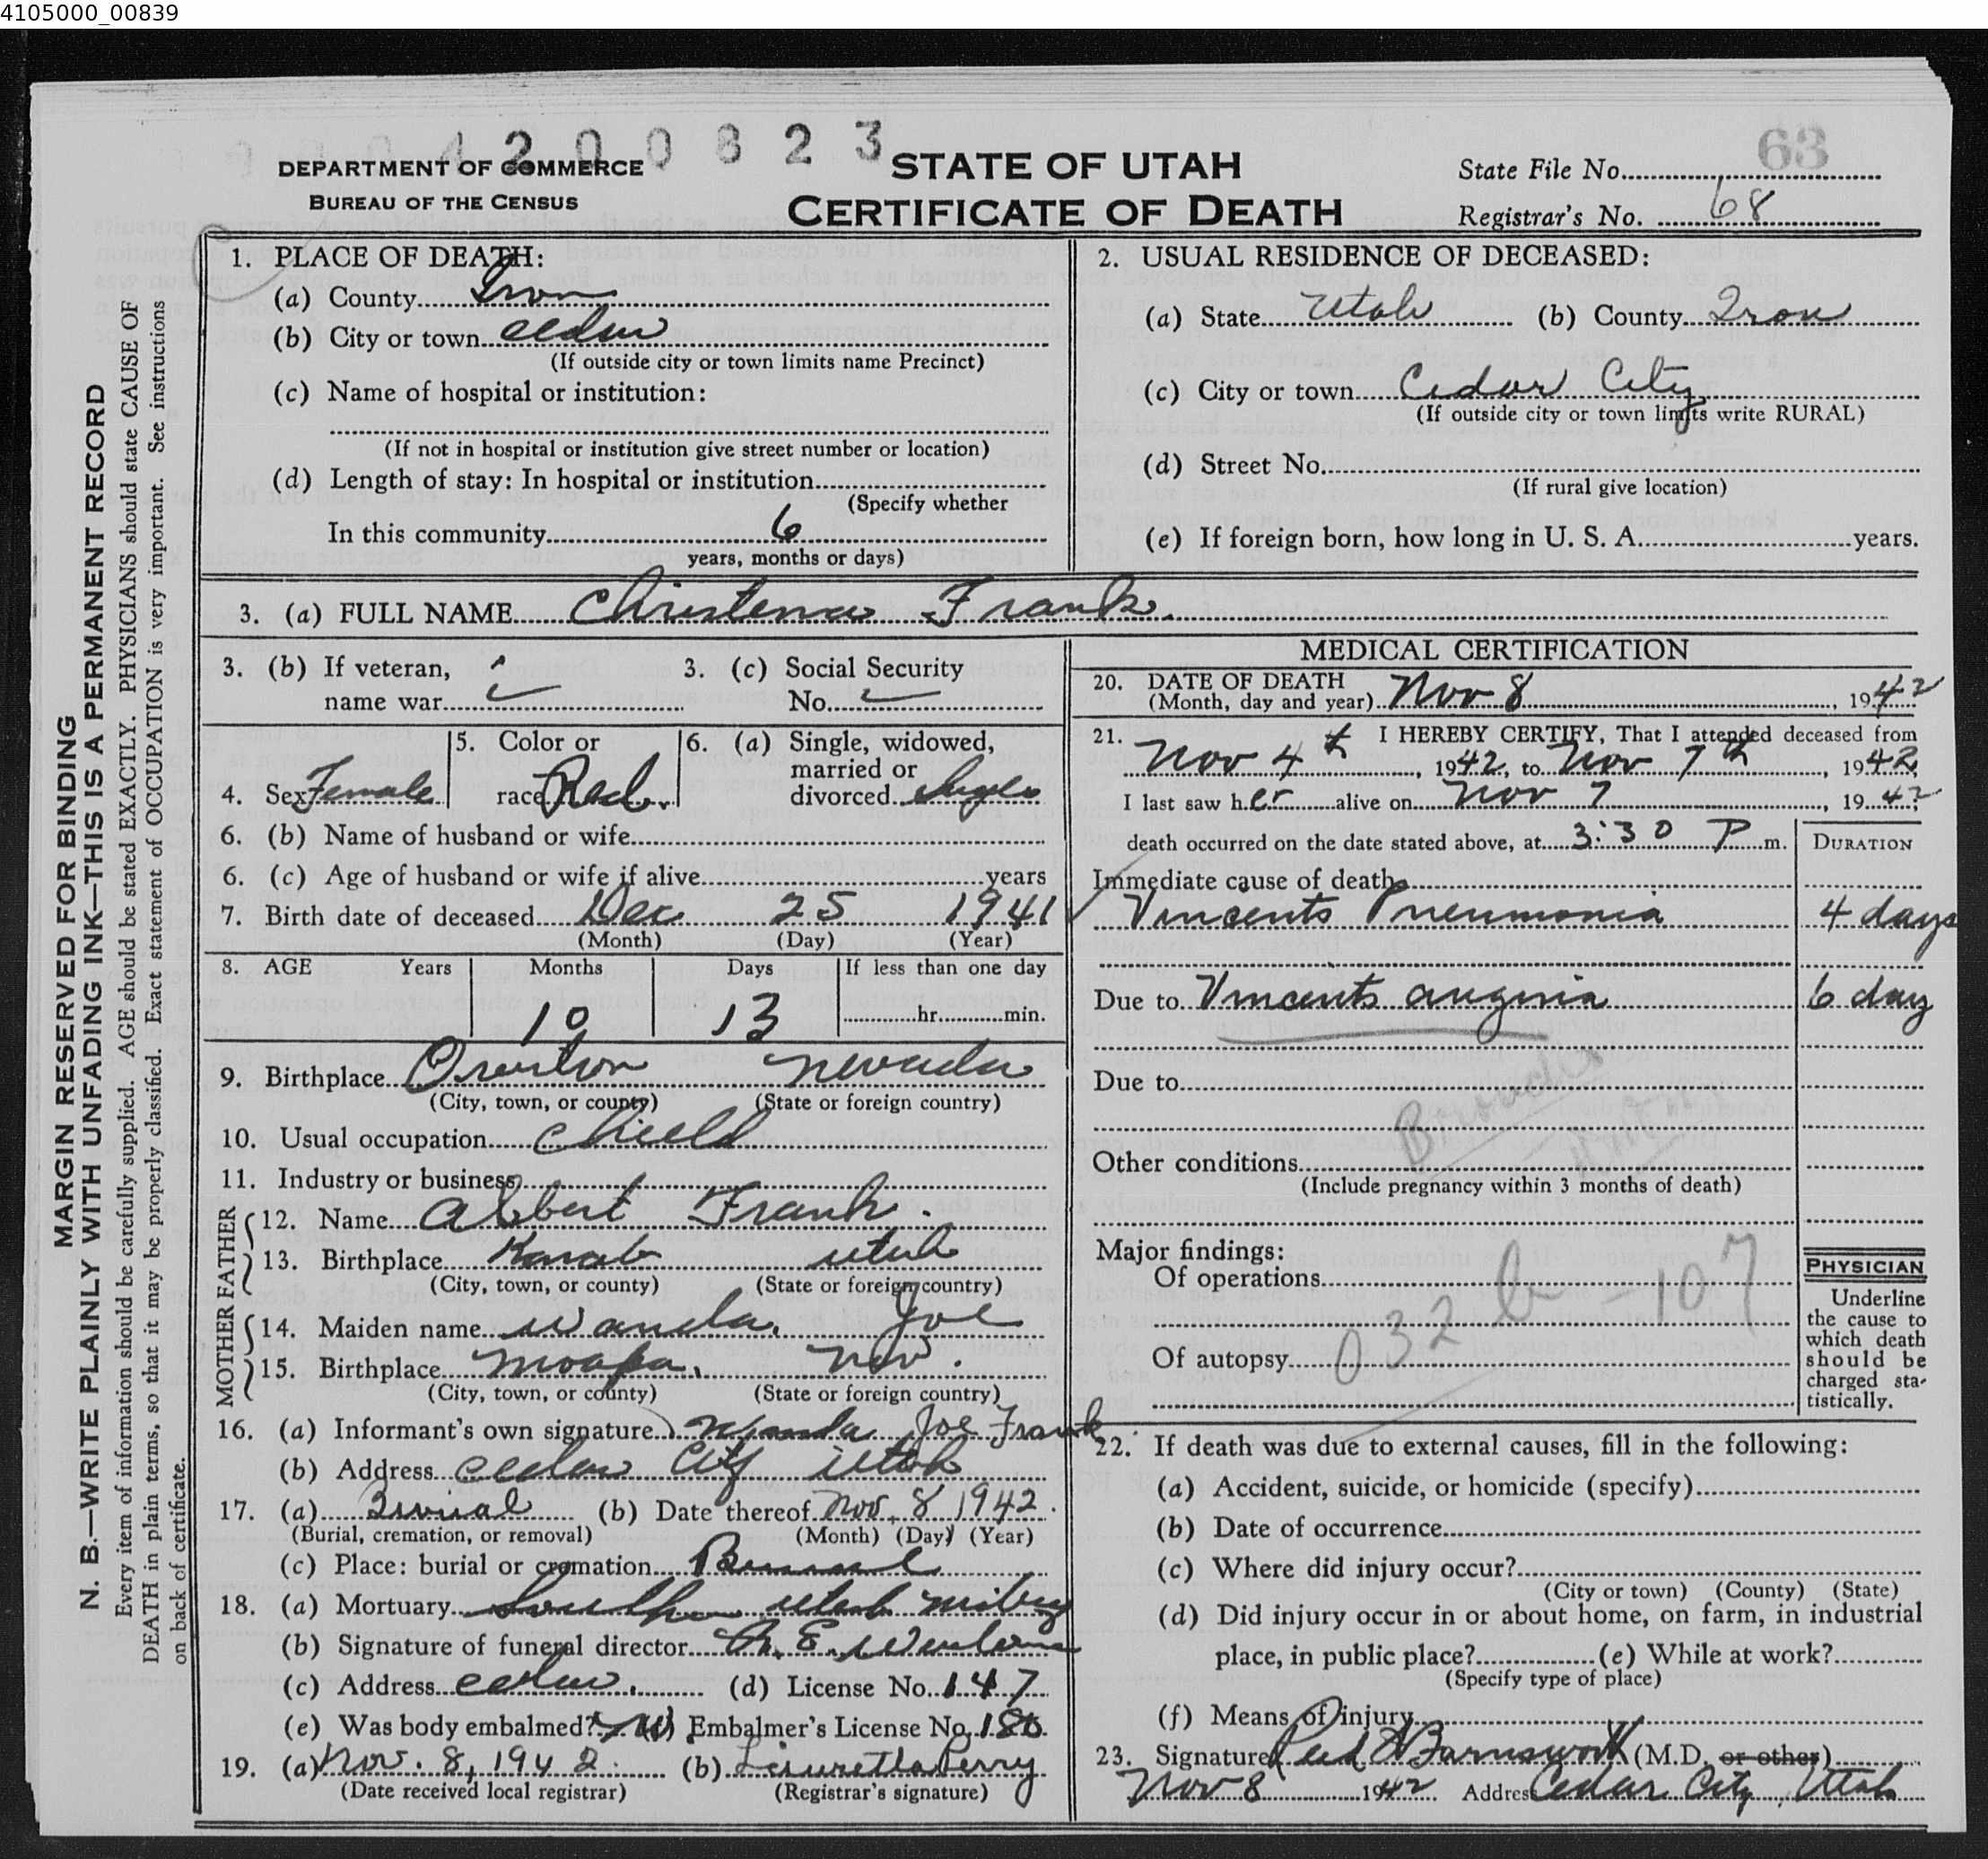 4105000_00839
4 2 0 0 8 2 3
DEPARTMENT OF COMMERCE
BUREAU OF THE CENSUS
STATE OF UTAH
CERTIFICATE OF DEATH
State File No. 63
Registrar's No. 68
MARGIN RESERVED FOR BINDING
N. B.—WRITE PLAINLY WITH UNFADING INK—THIS IS A PERMANENT RECORD
Every item of information should be carefully supplied. AGE should be stated EXACTLY. PHYSICIANS should state CAUSE OF
DEATH in plain terms, so that it may be properly classified. Exact statement of OCCUPATION is very important. See instructions
on back of certificate.
1. PLACE OF DEATH:
(a) County Iron
(b) City or town Cedar
(If outside city or town limits name Precinct)
(c) Name of hospital or institution:
(If not in hospital or institution give street number or location)
(d) Length of stay: In hospital or institution
(Specify whether
In this community 6
years, months or days)
2. USUAL RESIDENCE OF DECEASED:
(a) State Utah (b) County Iron
(c) City or town Cedar City
(If outside city or town limits write RURAL)
(d) Street No.
(If rural give location)
(e) If foreign born, how long in U. S. A. years.
3. (a) FULL NAME Christena Frank
3. (b) If veteran,
name war
3. (c) Social Security
No.
4. Sex Female
5. Color or
race Red.
6. (a) Single, widowed,
married or
divorced Single
6. (b) Name of husband or wife
6. (c) Age of husband or wife if alive years
7. Birth date of deceased Dec 25 1941
(Month) (Day) (Year)
8. AGE Years Months Days If less than one day
10 13 hr. min.
9. Birthplace Overton Nevada
(City, town, or county) (State or foreign country)
10. Usual occupation Child
11. Industry or business
FATHER
12. Name Albert Frank.
13. Birthplace Kanab Utah
(City, town, or county) (State or foreign country)
MOTHER
14. Maiden name Wanda. Joe
15. Birthplace Moapa. Nev.
(City, town, or county) (State or foreign country)
16. (a) Informant's own signature Wanda Joe Frank
(b) Address Cedar City Utah
17. (a) Burial (b) Date thereof Nov. 8 1942.
(Burial, cremation, or removal) (Month) (Day) (Year)
(c) Place: burial or cremation
18. (a) Mortuary Southern Utah
(b) Signature of funeral director
(c) Address Cedar. (d) License No. 147
(e) Was body embalmed? Embalmer's License No.
19. (a) Nov. 8, 1942. (b) Perry
(Date received local registrar) (Registrar's signature)
MEDICAL CERTIFICATION
20. DATE OF DEATH
(Month, day and year) Nov 8, 1942
21. I HEREBY CERTIFY, That I attended deceased from
Nov 4th, 1942, to Nov 7th, 1942,
I last saw her alive on Nov 7, 1942;
death occurred on the date stated above, at 3:30 P m.
DURATION
Immediate cause of death
Vincents Pneumonia 4 days
Due to Vincents angina 6 day
Due to
Other conditions
(Include pregnancy within 3 months of death)
Major findings:
Of operations
Of autopsy
032 b - 107
PHYSICIAN
Underline
the cause to
which death
should be
charged sta-
tistically.
22. If death was due to external causes, fill in the following:
(a) Accident, suicide, or homicide (specify)
(b) Date of occurrence
(c) Where did injury occur?
(City or town) (County) (State)
(d) Did injury occur in or about home, on farm, in industrial
place, in public place? (e) While at work?
(Specify type of place)
(f) Means of injury
23. Signature Farnsworth (M.D. or other)
Nov 8 1942 Address Cedar City, Utah